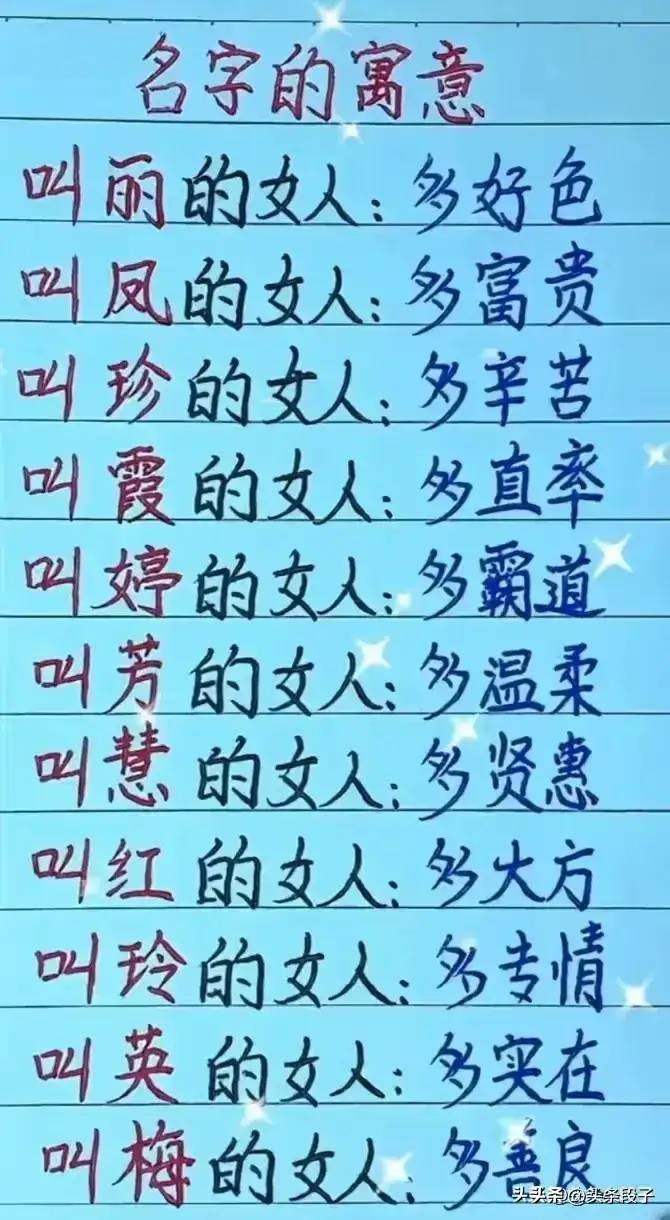 名字的寓意
叫丽的女人：多好色
叫凤的女人：多富贵
叫珍的女人：多辛苦
叫霞的女人：多直率
叫婷的女人：多霸道
叫芳的女人：多温柔
叫慧的女人：多贤惠
叫红的女人：多大方
叫玲的女人：多专情
叫英的女人：多实在
叫梅的女人：多善良
头条@头条段子